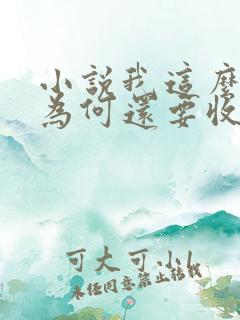 小說我這麼
為何還要收
可大可小
未經同意禁止轉載